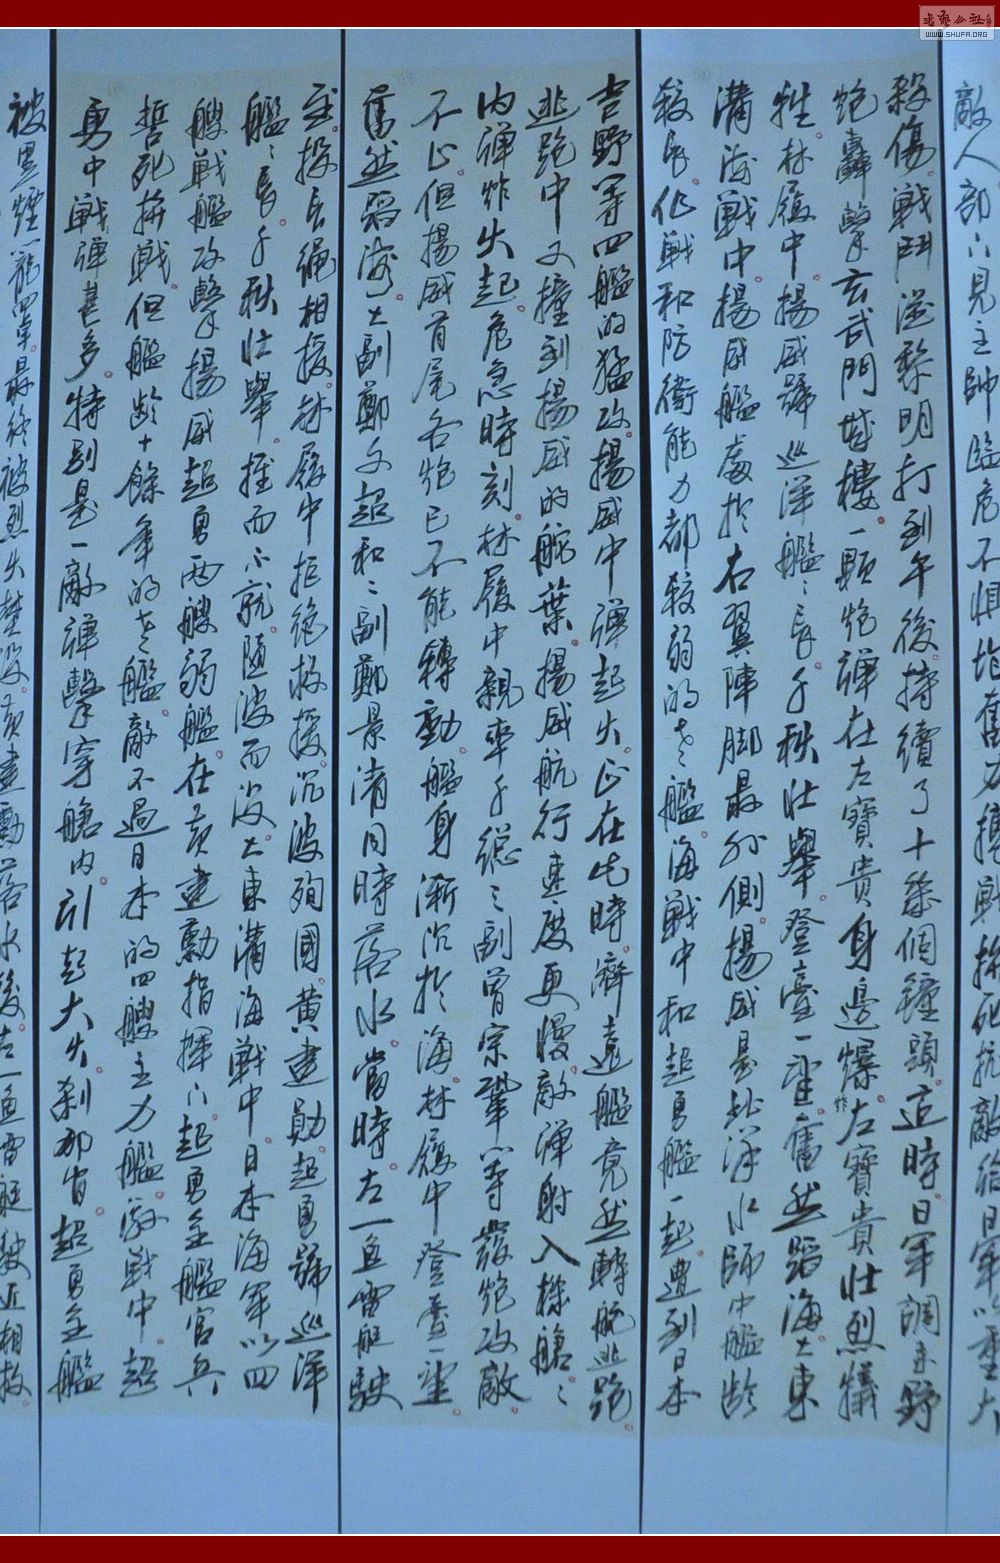 敵人部下見主帥臨危不惧皆奮力搏戰拚死抗敵給日軍以重大
殺傷戰鬥從黎明打到午後持續了十幾個鐘頭這時日軍調来野
炮轟擊玄武門城樓一顆炮弹在左寶貴身邊爆炸左寶貴壯烈犠
牲林履中揚威號巡洋艦艦長千秋壯舉登臺一望奮然蹈海大東
溝海戰中揚威艦處於右翼陣脚最外側揚威是北洋水師中艦齡
較長作戰和防衛能力都較弱的老艦海戰中和超勇艦一起遭到日本
吉野等四艦的猛攻揚威中弹起火正在此時濟遠艦竟然轉舵逃跑
逃跑中又撞到揚威的舵葉揚威航行速度更慢敵弹射入機艙艙
内弹炸火起危急時刻林履中親率千總三副曾宗鞏等發炮攻敵
不止但揚威首尾各炮已不能轉動艦身漸沉於海林履中登臺一望
奮然蹈海大副鄭文超和二副鄭景清同時落水當時左一魚雷艇駛
至投長繩相援林履中拒絶救援沉波殉國黄建勛超勇號巡洋
艦艦長千秋壯舉推而不就隨波而没大東溝海戰中日本海軍以四
艘戰艦攻擊揚威超勇两艘弱艦在黄建勳指揮下超勇全艦官兵
誓死拚戰但艦齡十餘年的老艦敵不過日本的四艘主力艦激戰中超
勇中戰弹甚多特别是一敵弹擊穿艙内引起大火刹那間超勇全艦
被黑煙籠罩最終被烈火焚没黄建勳落水後左一魚雷艇駛近相救
书艺公社
WWW.SHUFA.ORG